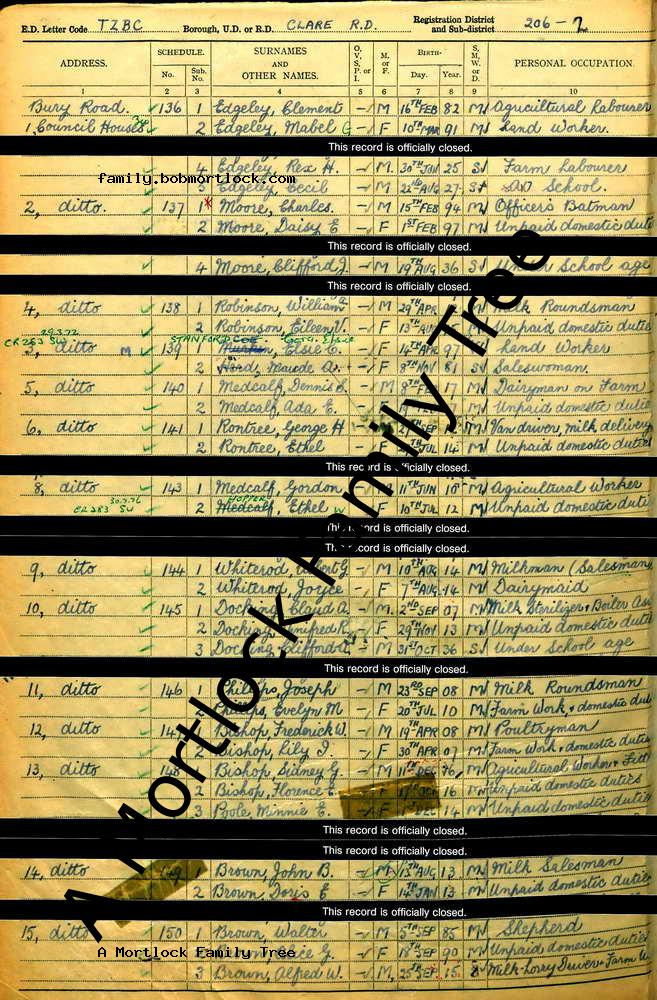 E.D. Letter Code TZBC Borough, U.D. or R.D. CLARE R.D. Registration District and Sub-district 206-2
ADDRESS. SCHEDULE. No. Sub. No. SURNAMES AND OTHER NAMES. O. V. S. P. or I. M. or F. BIRTH— Day. Year. S. M. W. or D. PERSONAL OCCUPATION.
1 2 3 4 5 6 7 8 9 10
Bury Road. 136 1 Edgeley, Clement - M 16TH FEB 82 M Agricultural Labourer
1, Council Houses 2 Edgeley, Mabel G - F 10TH MAR 91 M Land Worker.
This record is officially closed.
4 Edgeley, Rex H. - M. 30TH JAN 25 S Farm Labourer
family.bobmortlock.com
Edgeley, Cecil - M 22ND AUG 27 S At School.
2, ditto. 137 1 Moore, Charles. - M 15TH FEB 94 M Officer's Batman
2 Moore, Daisy E - F 1ST FEB 97 M Unpaid domestic duties
This record is officially closed.
4 Moore, Clifford J. - M 19TH AUG 36 S Under School age
This record is officially closed.
4, ditto 138 1 Robinson, William A. - M 29TH APR Milk Roundsman
2 Robinson, Eileen V. - F 13TH Unpaid domestic duties
29.3.72 CR283 SW STANFORD COE
3, ditto M 139 1 Elsie E. - F 14TH APR 97 Land Worker
2 Hird, Maude A. - F 8TH NOV 81 S Saleswoman.
5, ditto 140 1 Medcalf, Dennis - M 8TH FEB 17 M Dairyman on Farm
2 Medcalf, Ada E. - F Unpaid domestic duties
6, ditto 141 1 Rontree, George H - M SEP M Van driver, milk delivery
2 Rontree, Ethel - F JUL 14 M Unpaid domestic duties
This record is officially closed.
8, ditto 143 1 Medcalf, Gordon - M 11TH JUN 10 M Agricultural Worker
30.7.76 CR283 SW HOPPER
2 Medcalf, Ethel W - F 10TH JUL 12 M Unpaid domestic duties
This record is officially closed.
This record is officially closed.
9, ditto 144 1 Whiterod, Albert G - M 10TH AUG 14 M Milkman (Salesman)
2 Whiterod, Joyce - F 7TH AUG 14 M Dairymaid
10, ditto 145 1 Docking, Claud A. - M 2ND SEP 07 M Milk Sterilizer & Boiler
2 Docking, Winifred R. - F 29TH NOV 13 M Unpaid domestic duties
3 Docking, Clifford - M 31ST OCT 36 S Under School age
This record is officially closed.
11, ditto 146 1 Phillips, Joseph - M 23RD SEP 08 M Milk Roundsman
2 Phillips, Evelyn M - F 20TH JUL 10 M Farm Work, & domestic duties
12, ditto 147 1 Bishop, Frederick W. - M 19TH APR 08 M Poultryman
2 Bishop, Lily I. - F 30TH APR 07 M Farm Work & domestic duties
13, ditto 148 1 Bishop, Sidney G. - M 11TH DEC 76 M Agricultural Worker
2 Bishop, Florence E. - F 17TH OCT 16 M Unpaid domestic duties
3 Poole, Minnie E. - F DEC 14 M Unpaid domestic duties
This record is officially closed.
This record is officially closed.
14, ditto 149 1 Brown, John B. - M 13TH AUG 13 M Milk Salesman
2 Brown, Doris E - F 14TH JAN 13 M Unpaid domestic duties
This record is officially closed.
15, ditto 150 1 Brown, Walter - M 5TH SEP 85 M Shepherd
A Mortlock Family Tree
2 Brown, Alice G. - F SEP 90 M Unpaid domestic duties
3 Brown, Alfred W. - M, 25TH SEP 15 S Milk-Lorry Driver & Farm
A Mortlock Family Tree